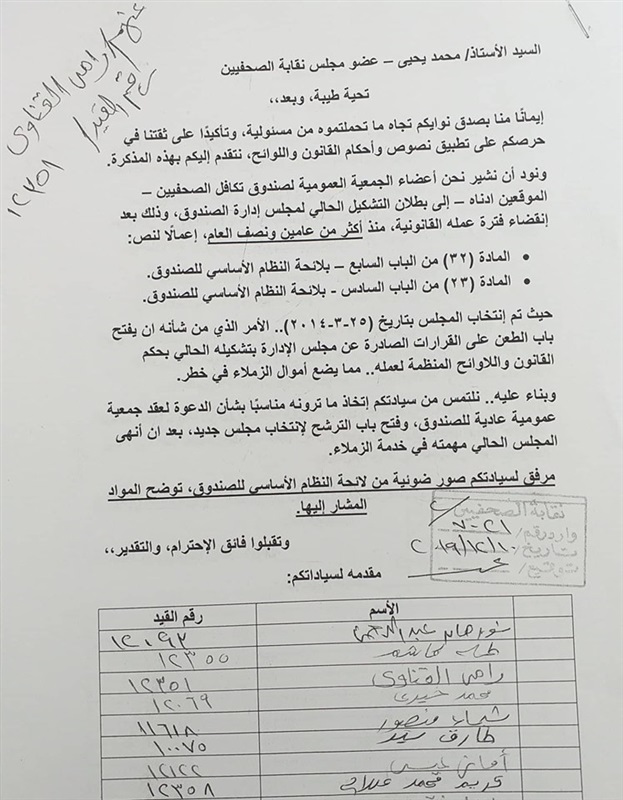 رامي القناوي
رقم القيد/
١٢٣٥١
السيد الأستاذ/ محمد يحيى – عضو مجلس نقابة الصحفيين
تحية طيبة، وبعد،،
إيمانًا منا بصدق نوايكم تجاه ما تحملتموه من مسئولية، وتأكيدًا على ثقتنا في
حرصكم على تطبيق نصوص وأحكام القانون واللوائح، نتقدم إليكم بهذه المذكرة.
ونود أن نشير نحن أعضاء الجمعية العمومية لصندوق تكافل الصحفيين –
الموقعين ادناه – إلى بطلان التشكيل الحالي لمجلس إدارة الصندوق، وذلك بعد
إنقضاء فترة عمله القانونية، منذ أكثر من عامين ونصف العام، إعمالًا لنص:
• المادة (٣٢) من الباب السابع – بلائحة النظام الأساسي للصندوق.
• المادة (٢٣) من الباب السادس - بلائحة النظام الأساسي للصندوق.
حيث تم إنتخاب المجلس بتاريخ (٢٥-٣-٢٠١٤).. الأمر الذي من شأنه ان يفتح
باب الطعن على القرارات الصادرة عن مجلس الإدارة بتشكيله الحالي بحكم
القانون واللاوائح المنظمة لعمله.. مما يضع أموال الزملاء في خطر.
وبناء عليه.. نلتمس من سيادتكم إتخاذ ما ترونه مناسبًا بشأن الدعوة لعقد جمعية
عمومية عادية للصندوق، وفتح باب الترشح لإنتخاب مجلس جديد، بعد ان أنهى
المجلس الحالي مهمته في خدمة الزملاء.
مرفق لسيادتكم صور ضوئية من لائحة النظام الأساسي للصندوق، توضح المواد
المشار إليها.
نقابة الصحفيين
وارد رقم/ ٧٠٢١
تاريخ/ ٢٠١٩/١٢/١٠
توقيع/
وتقبلوا فائق الإحترام، والتقدير،،
مقدمه لسياداتكم:
الأسم رقم القيد
عبدالرحمن ١٢٠٩٣
١٢٣٥٥
رامي القناوي ١٢٣٥١
محمد خيري ١٢٠٦٩
شيماء منصور ١١٦١٨
طارق سيد ١٠٠٧٥
أماني عيسى ١٢١٢٢
كريم محمد ١٢٣٥٨